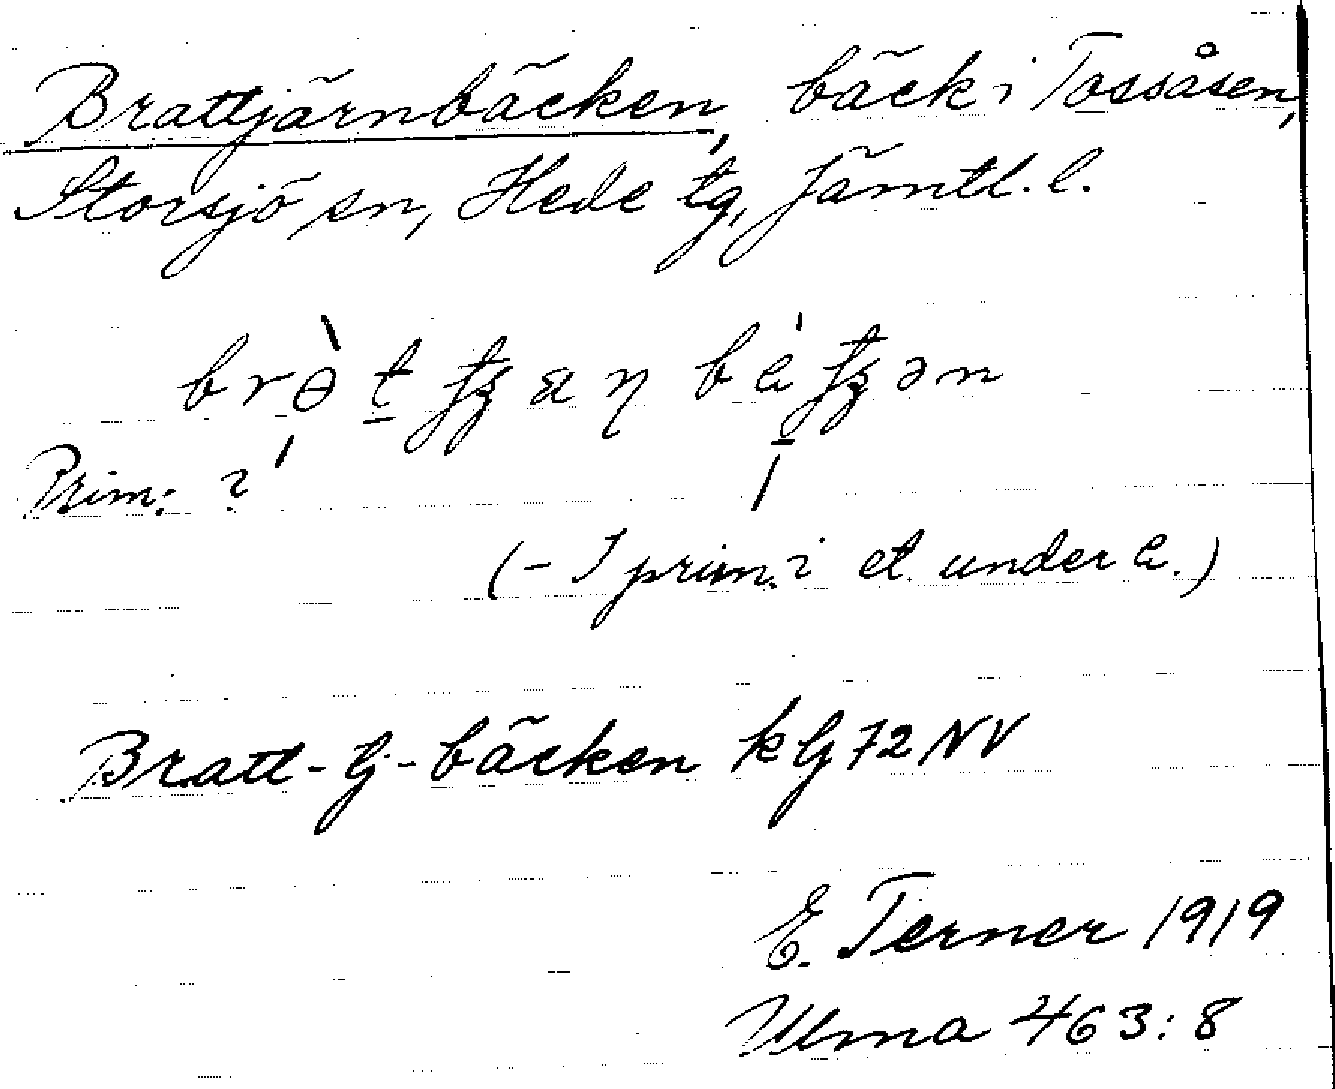 Brattjärnbäcken, bäck i Tossåsen,
Storsjö sn, Hede tg, Jämtl. l.
Prim: ?
(- I prim. i et under a.)
Bratt-tj-bäcken k lj 72 NV
E. Terner 1919
Ulma 463:8